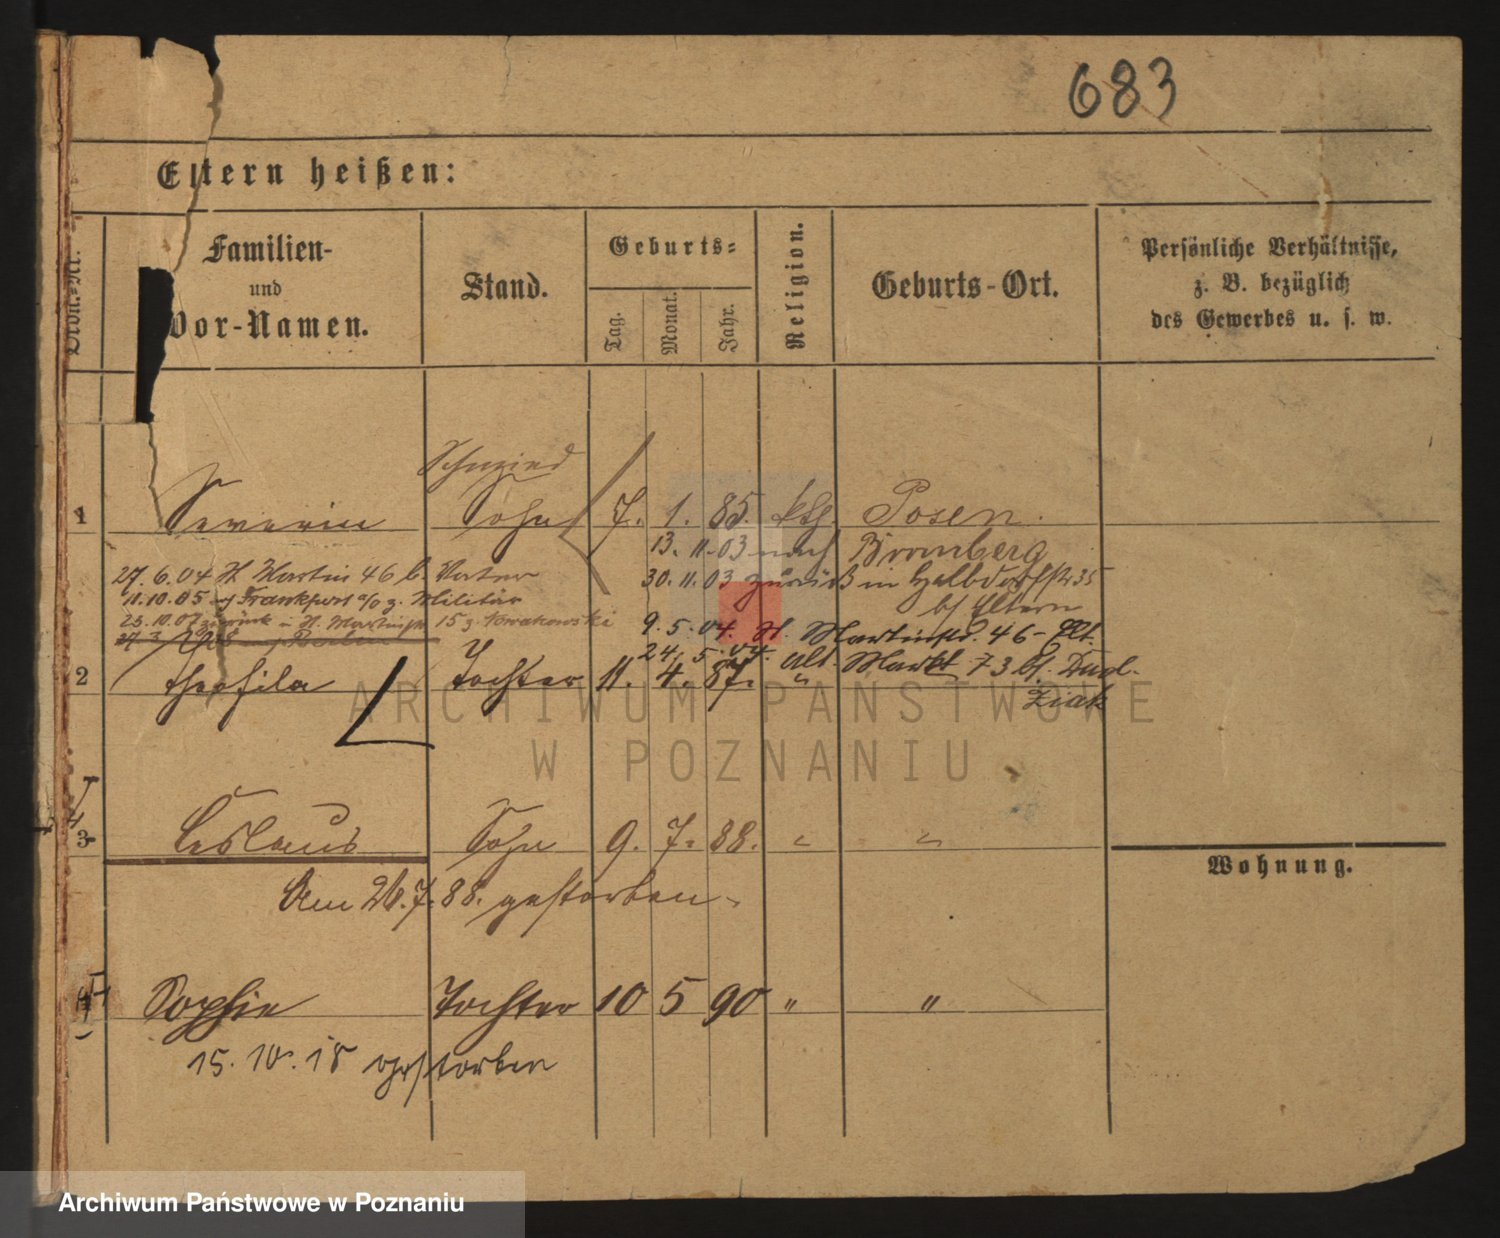 683
Eltern heißen:
Ordn.-Nr.
Familien- und Vor-Namen.
Stand.
Geburts=
Tag.
Monat.
Jahr.
Religion.
Geburts-Ort.
Persönliche Verhältnisse,
z. B. bezüglich
des Gewerbes u. s. w.
Schmied
1 Severin Sohn 7. 1. 85. kth. Posen.
13. 11. 03 nach Bromberg
30. 11. 03 zurück in Halbdorfstr 35
b/ Eltern
27. 6. 04 St Martin 46 b. Vater
11.10.05 n/ Frankfurt a/O z. Militär
25.10.07 zurück St. Martinstr 15 Nowakowski
27.3. 08 n/ Berlin
9. 5. 04. St. Martinstr. 46 - Elt.
24. 5. 04. Alt. Markt 73 bei Dud-
ziak
2 Theofila Tochter 11. 4. 87. "
3 Ceslaus Sohn 9. 7. 88. " "
Am 26.7.88. gestorben.
Wohnung.
4 Sophie Tochter 10 5 90 " "
15. 10. 18 gestorben
ARCHIWUM PAŃSTWOWE
W POZNANIU
Archiwum Państwowe w Poznaniu